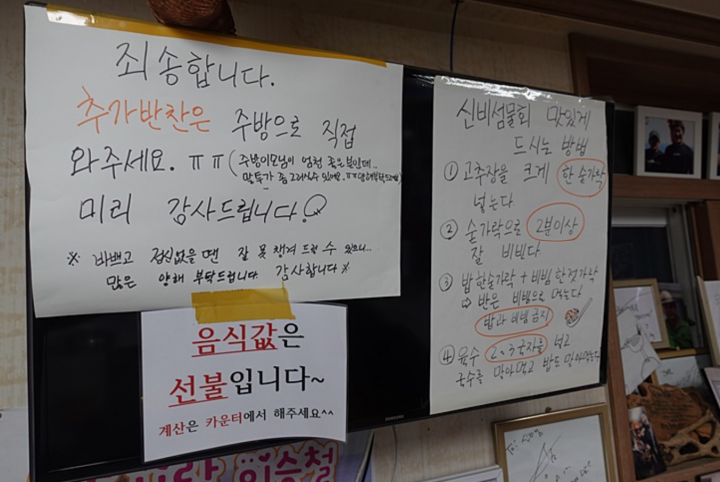 죄송합니다.
추가반찬은 주방으로 직접
와주세요. ㅠㅠ (주방이모님이 엄청 좋은분인데..
말투가 좀 그러실수 있어요. ㅠㅠ
미리 감사드립니다!
※ 바쁘고 정신없을 땐 잘 못 챙겨 드릴 수 있으니..
많은 양해 부탁드립니다 감사합니다※
음식값은
선불입니다~
계산은 카운터에서 해주세요^^
신비섬물회 맛있게
드시는 방법
① 고추장을 크게 한 숟가락
넣는다
② 숟가락으로 2분이상
잘 비빈다
③ 밥 한숟가락 + 비빔 한젓가락
⇨ 반은 비빔으로 먹는다
밥과 비빔 금지
④ 육수 2~3국자를 넣고
국수를 말아먹고 밥도 말아먹는다
SAMSUNG
이승철